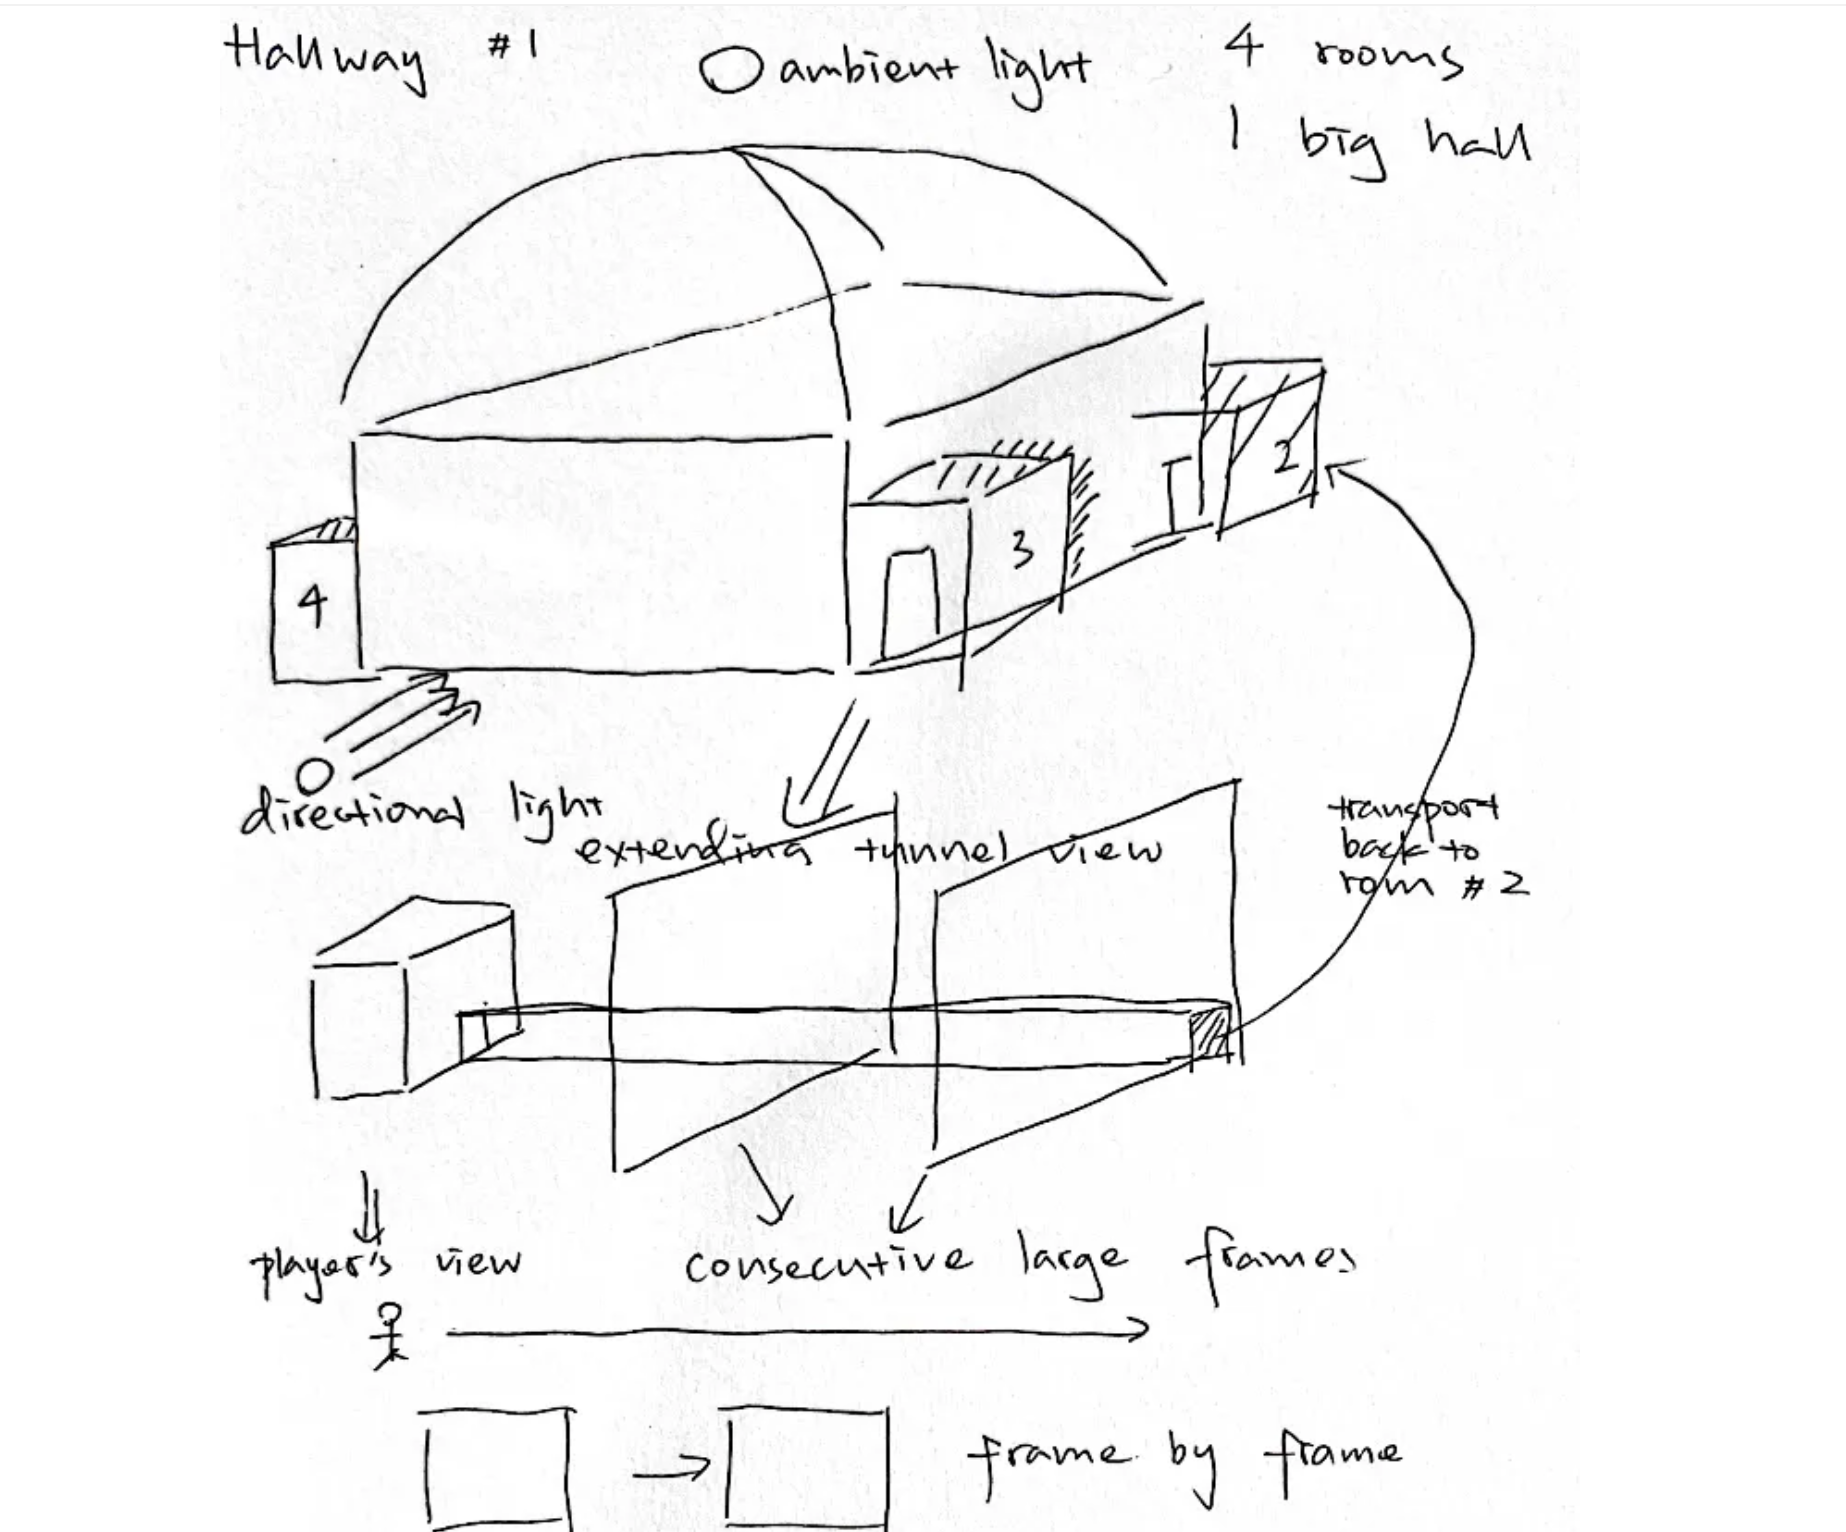 Hallway #1
ambient light
4 rooms
1 big hall
2
3
4
directional light
extending tunnel view
transport
back to
rom #2
player's view
consecutive large frames
frame by frame